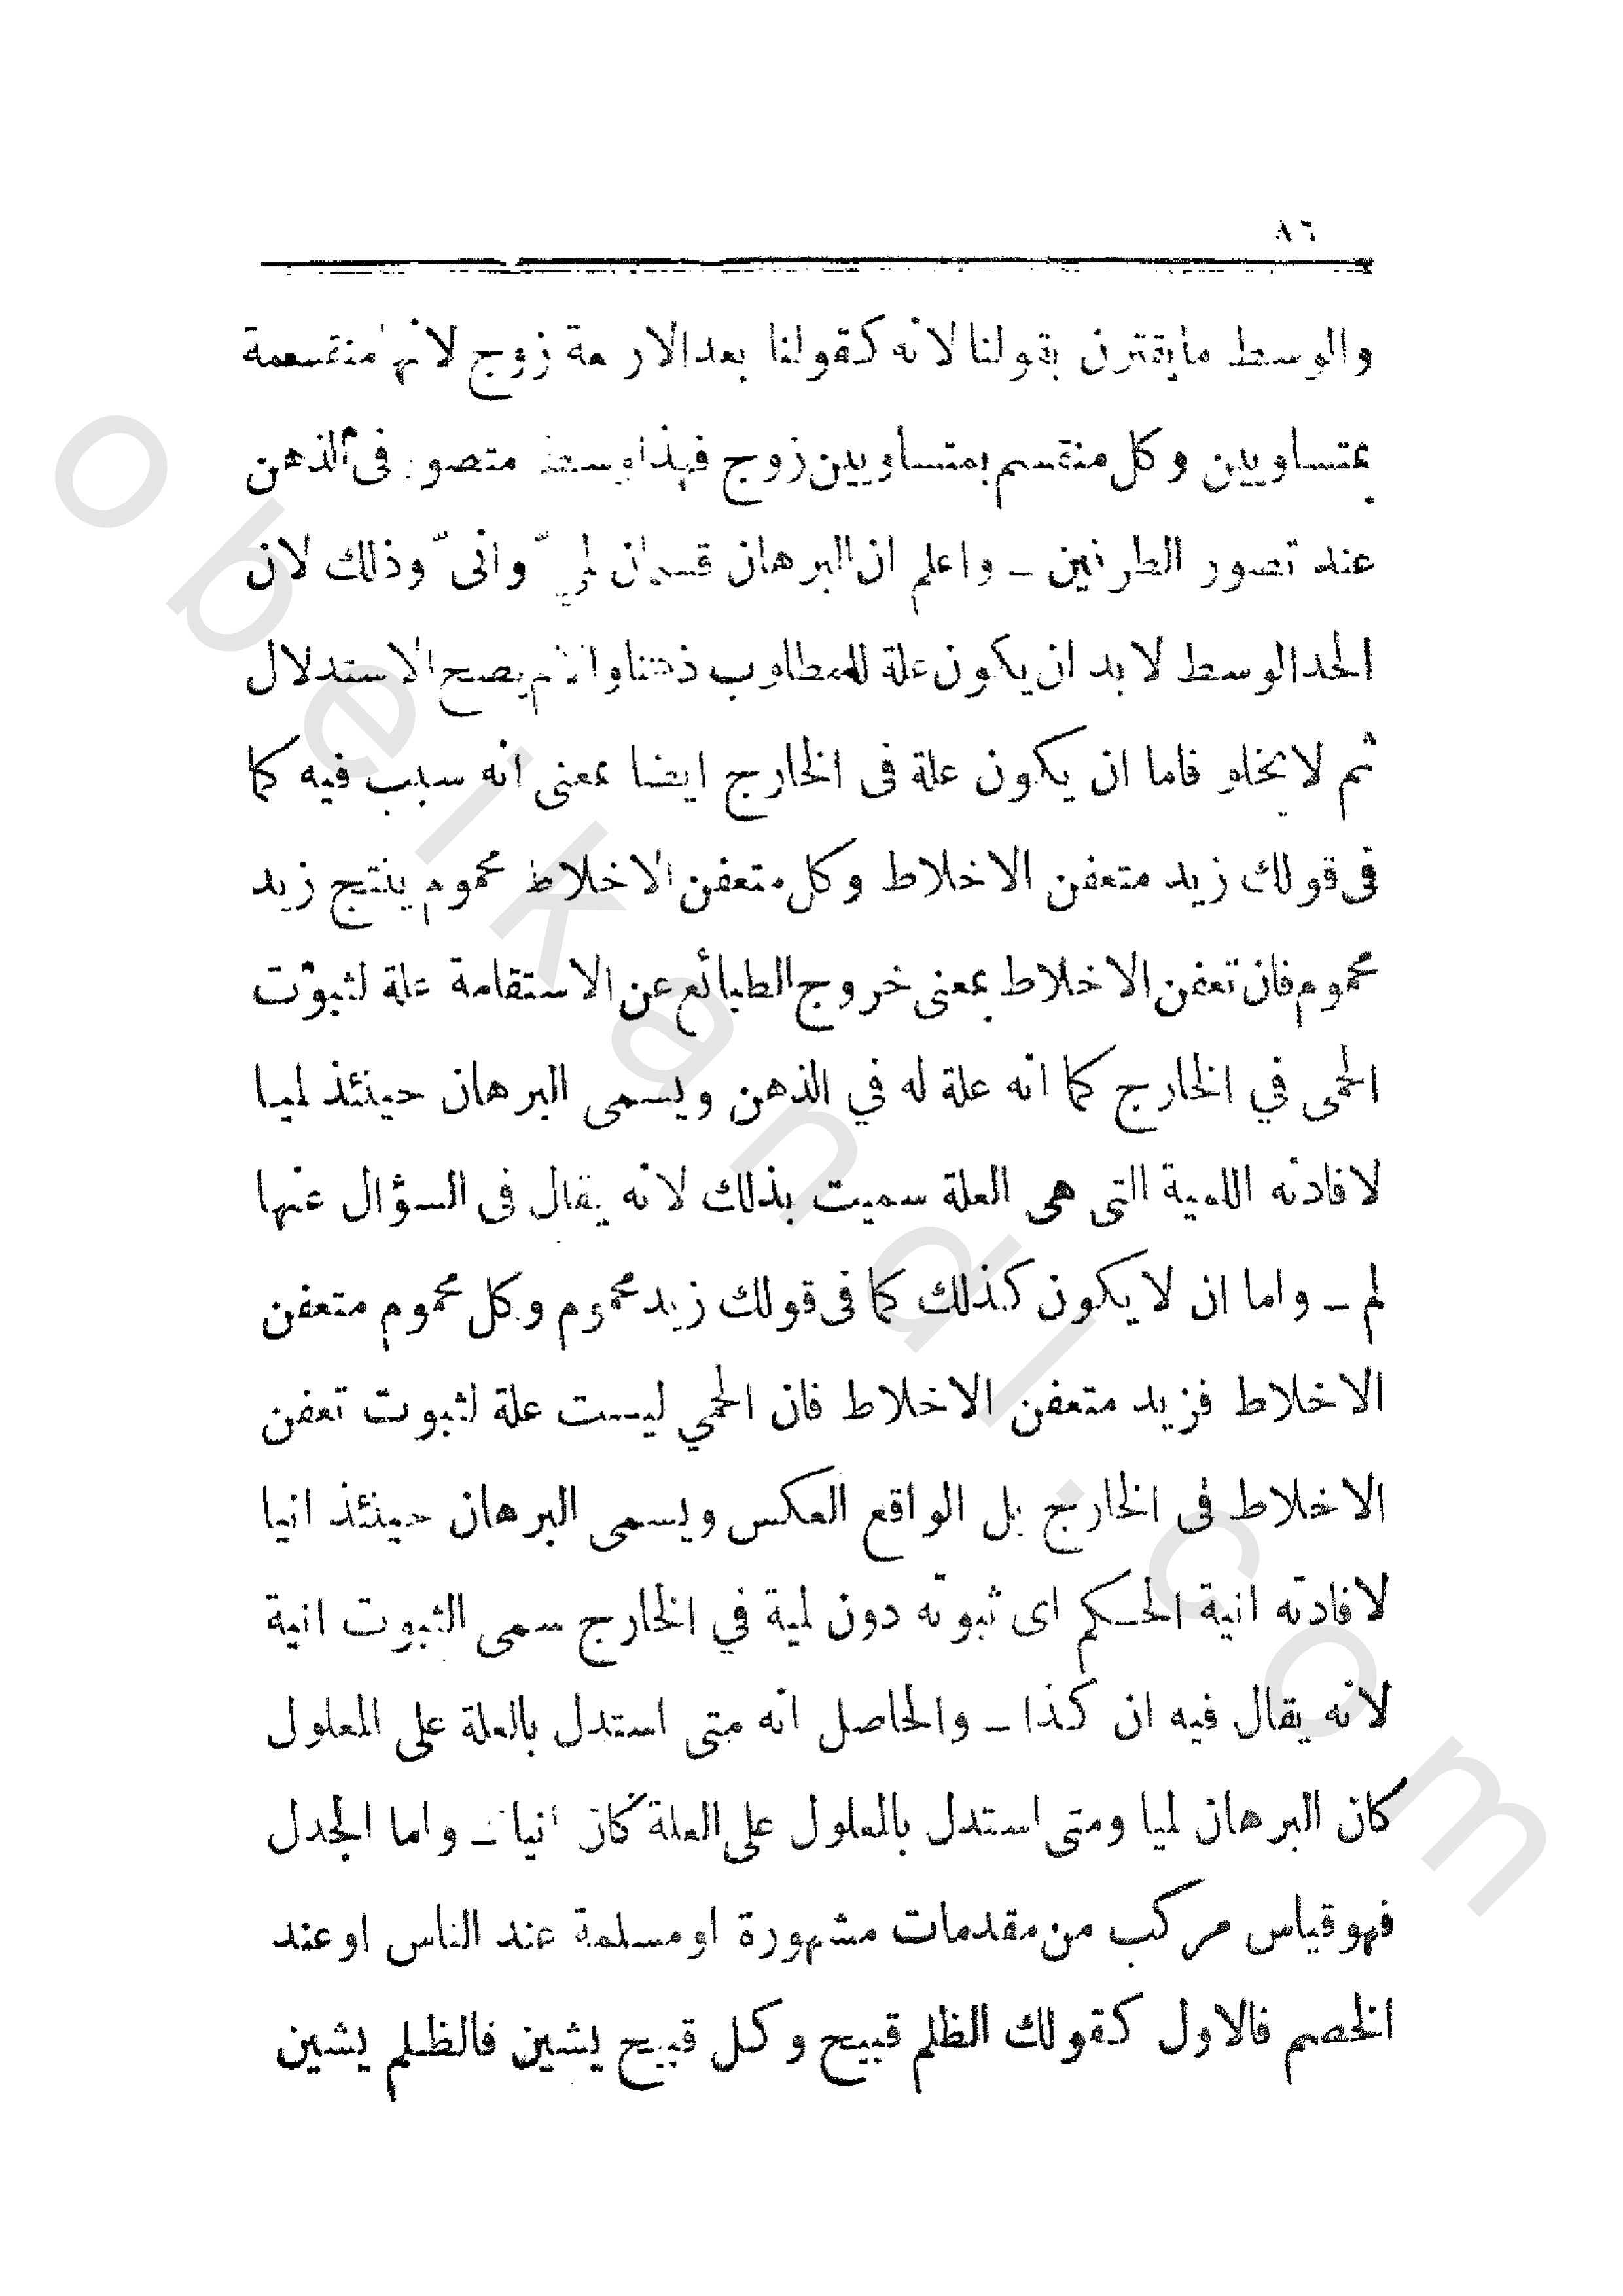 ٨٦
والوسط مايقترن بقولنا لانه كقولنا بعد الاربعة زوج لانها منقسمة
بمتساويين وكل منقسم بمتساويين زوج فهذا وسط متصور فى الذهن
عند تصور الطرفين ــ واعلم ان البرهان قسمان لميّ وانىّ وذلك لان
الحد الوسط لابد ان يكون علة للمطلوب ذهنا والا لم يصح الاستدلال
ثم لا يخلو فاما ان يكون علة فى الخارج ايضا بمعنى انه سبب فيه كما
فى قولك زيد متعفن الاخلاط وكل متعفن الاخلاط محموم ينتج زيد
محموم فان تعفن الاخلاط بمعنى خروج الطبائع عن الاستقامة علة لثبوت
الحمى في الخارج كما انه علة له في الذهن ويسمى البرهان حينئذ لميا
لافادته اللمية التى هى العلة سميت بذلك لانه يقال فى السؤال عنها
لم ــ واما ان لا يكون كذلك كما فى قولك زيد محموم وكل محموم متعفن
الاخلاط فزيد متعفن الاخلاط فان الحمي ليست علة لثبوت تعفن
الاخلاط فى الخارج بل الواقع العكس ويسمى البرهان حينئذ انيا
لافادته انية الحكم اى ثبوته دون لمية في الخارج سمى الثبوت انية
لانه يقال فيه ان كذا ــ والحاصل انه متى استدل بالعلة على المعلول
كان البرهان لميا ومتى استدل بالمعلول على العلة كان انيا ــ واما الجدل
فهو قياس مركب من مقدمات مشهورة او مسلمة عند الناس او عند
الخصم فالاول كقولك الظلم قبيح وكل قبيح يشين فالظلم يشين
obeikandl.com